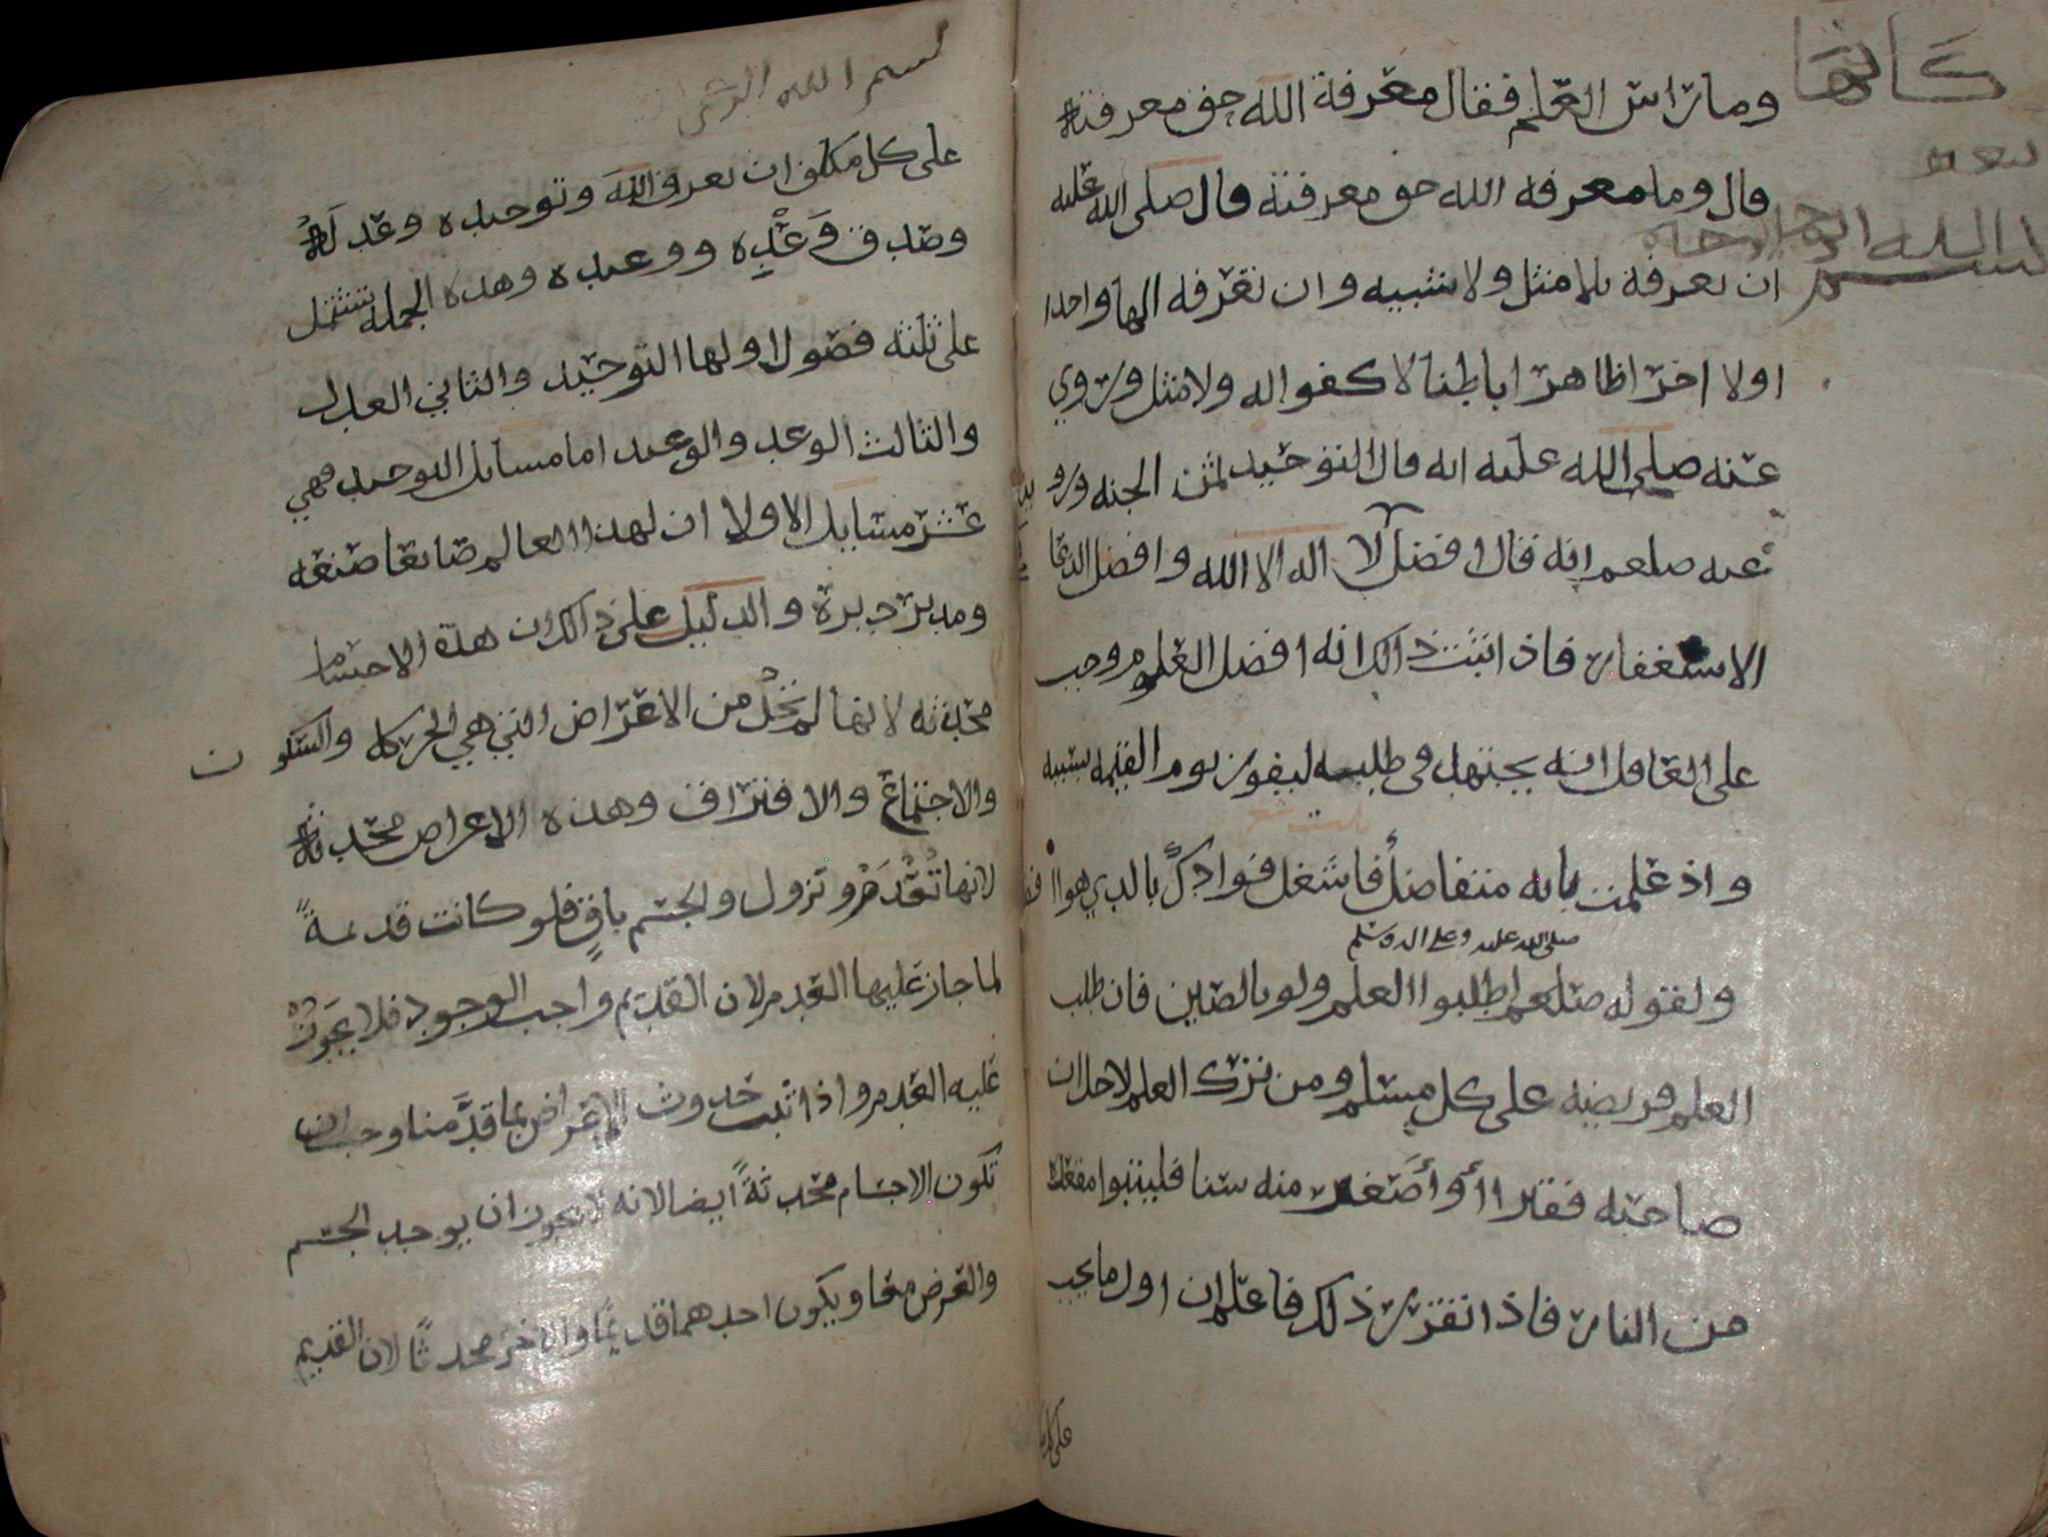 كانها
وما راس العلم فقال معرفة الله حق معرفته
بسم
بسم الله الرحمن
قال وما معرفة الله حق معرفته قال صلى الله عليه
ان تعرفه بلا مثل ولا شبيه وان تعرفه الها واحدا
اولا اخرا ظاهرا باطنا لا كفوا له ولا مثل وروي
عنه صلى الله عليه انه قال التوحيد ثمن الجنه وروي
عنه صلعم انه قال افضل لا اله الا الله وافضل الدعا
الاستغفار فاذا ثبت ذالك انه افضل العلوم وجب
على العاقل انه يجتهد في طلبه ليفوز يوم القيمه بسببه
بيت شعر
واذ علمت بانه متفاضل فاشغل فوادك بالذي هو ا فضل
صلى الله عليه وعلى اله وسلم
ولقوله صلعم اطلبوا العلم ولو بالصين فان طلب
العلم فريضه على كل مسلم ومن ترك العلم لاجل ان
صاحبه فقيرا أو أصغر منه سنا فليتبوا مقعده
من النار فاذا تقرر ذلك فاعلم ان اول ما يجب
على كل
بسم الله الرحمن
على كل مكلف ان يعرف الله وتوحيده وعدله
وصدق وعده ووعيده وهذه الجمله تشتمل
على ثلثه فصول اولها التوحيد والثاني العدل
والثالث الوعد والوعيد اما مسايل التوحيد فهي
عشر مسايل الاولا ان لهذا العالم صانعا صنعه
ومدبر دبره والدليل على ذالك ان هذه الاجسام
محدثه لانها لم تخل من الاعراض التي هي الحركه والسكون
والاجتماع والافتراق وهذه الاعراض محدثه
لانها تعدم وتزول والجسم باق فلو كانت قديمة
لما جاز عليها العدم لان القديم واجب الوجود فلا يجوز
عليه العدم واذا ثبت حدوث الاعراض بما قدمنا وجب ان
تكون الاجسام محدثة ايضا لانه لا يجوز ان يوجد الجسم
والعرض معا ويكون احدهما قديما والاخر محدثا لان القديم